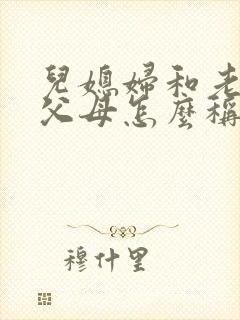 兒媳婦和老
父母怎麼稱
穆什里